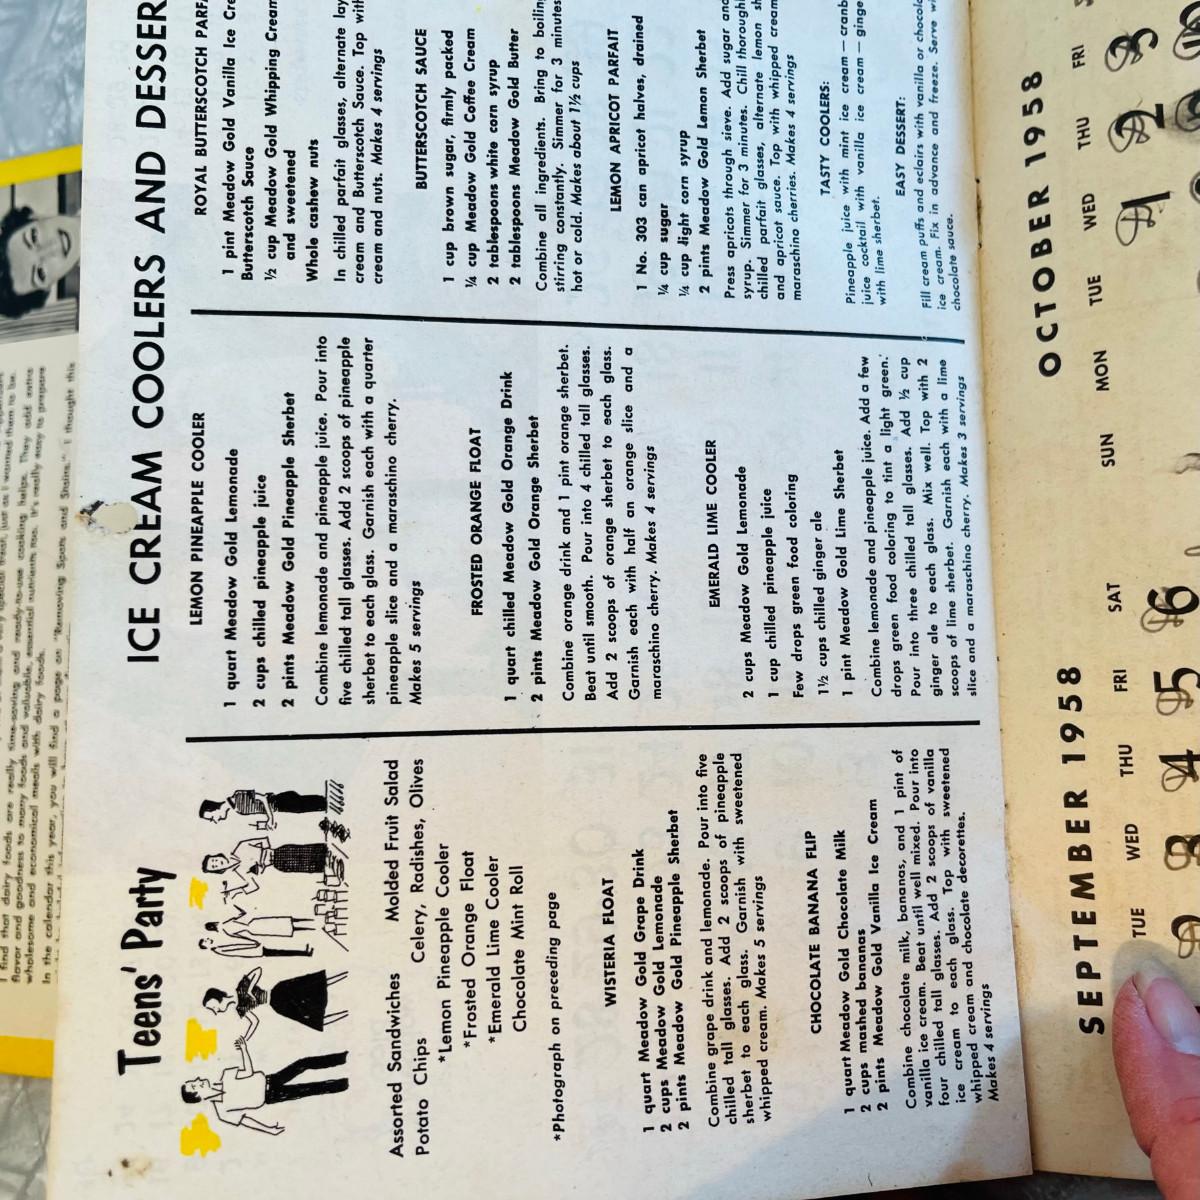 Teens' Party
Assorted Sandwiches Molded Fruit Salad
Potato Chips Celery, Radishes, Olives
*Lemon Pineapple Cooler
*Frosted Orange Float
*Emerald Lime Cooler
Chocolate Mint Roll
*Photograph on preceding page
WISTERIA FLOAT
1 quart Meadow Gold Grape Drink
2 cups Meadow Gold Lemonade
2 pints Meadow Gold Pineapple Sherbet
Combine grape drink and lemonade. Pour into five
chilled tall glasses. Add 2 scoops of pineapple
sherbet to each glass. Garnish with sweetened
whipped cream. Makes 5 servings
CHOCOLATE BANANA FLIP
1 quart Meadow Gold Chocolate Milk
2 cups mashed bananas
2 pints Meadow Gold Vanilla Ice Cream
Combine chocolate milk, bananas, and 1 pint of
vanilla ice cream. Beat until well mixed. Pour into
four chilled tall glasses. Add 2 scoops of vanilla
ice cream to each glass. Top with sweetened
whipped cream and chocolate decorettes.
Makes 4 servings
ICE CREAM COOLERS AND DESSER
LEMON PINEAPPLE COOLER
1 quart Meadow Gold Lemonade
2 cups chilled pineapple juice
2 pints Meadow Gold Pineapple Sherbet
Combine lemonade and pineapple juice. Pour into
five chilled tall glasses. Add 2 scoops of pineapple
sherbet to each glass. Garnish each with a quarter
pineapple slice and a maraschino cherry.
Makes 5 servings
FROSTED ORANGE FLOAT
1 quart chilled Meadow Gold Orange Drink
2 pints Meadow Gold Orange Sherbet
Combine orange drink and 1 pint orange sherbet.
Beat until smooth. Pour into 4 chilled tall glasses.
Add 2 scoops of orange sherbet to each glass.
Garnish each with half an orange slice and a
maraschino cherry. Makes 4 servings
EMERALD LIME COOLER
2 cups Meadow Gold Lemonade
1 cup chilled pineapple juice
Few drops green food coloring
1½ cups chilled ginger ale
1 pint Meadow Gold Lime Sherbet
Combine lemonade and pineapple juice. Add a few
drops green food coloring to tint a light green.
Pour into three chilled tall glasses. Add ½ cup
ginger ale to each glass. Mix well. Top with 2
scoops of lime sherbet. Garnish each with a lime
slice and a maraschino cherry. Makes 3 servings
ROYAL BUTTERSCOTCH PARF
1 pint Meadow Gold Vanilla Ice Cre
Butterscotch Sauce
½ cup Meadow Gold Whipping Cream
and sweetened
Whole cashew nuts
In chilled parfait glasses, alternate lay
cream and Butterscotch Sauce. Top with
cream and nuts. Makes 4 servings
BUTTERSCOTCH SAUCE
1 cup brown sugar, firmly packed
¼ cup Meadow Gold Coffee Cream
2 tablespoons white corn syrup
2 tablespoons Meadow Gold Butter
Combine all ingredients. Bring to boiling
stirring constantly. Simmer for 3 minutes
hot or cold. Makes about 1½ cups
LEMON APRICOT PARFAIT
1 No. 303 can apricot halves, drained
¼ cup sugar
¼ cup light corn syrup
2 pints Meadow Gold Lemon Sherbet
Press apricots through sieve. Add sugar and
syrup. Simmer for 3 minutes. Chill thoroughl
chilled parfait glasses, alternate lemon sh
and apricot sauce. Top with whipped cream
maraschino cherries. Makes 4 servings
TASTY COOLERS:
Pineapple juice with mint ice cream — cranb
juice cocktail with vanilla ice cream — ginge
with lime sherbet.
EASY DESSERT:
Fill cream puffs and eclairs with vanilla or chocol
ice cream. Fix in advance and freeze. Serve wi
chocolate sauce.
SEPTEMBER 1958
TUE WED THU FRI SAT
2 3 4 5 6
OCTOBER 1958
SUN MON TUE WED THU FRI
1 2 3
flavor and goodness to many foods and ready-to-use cooking helps. They add extra
wholesome and economical meals with dairy foods.
In the calendar this year, you will find a page on "Removing Spots and Stains." I thought this